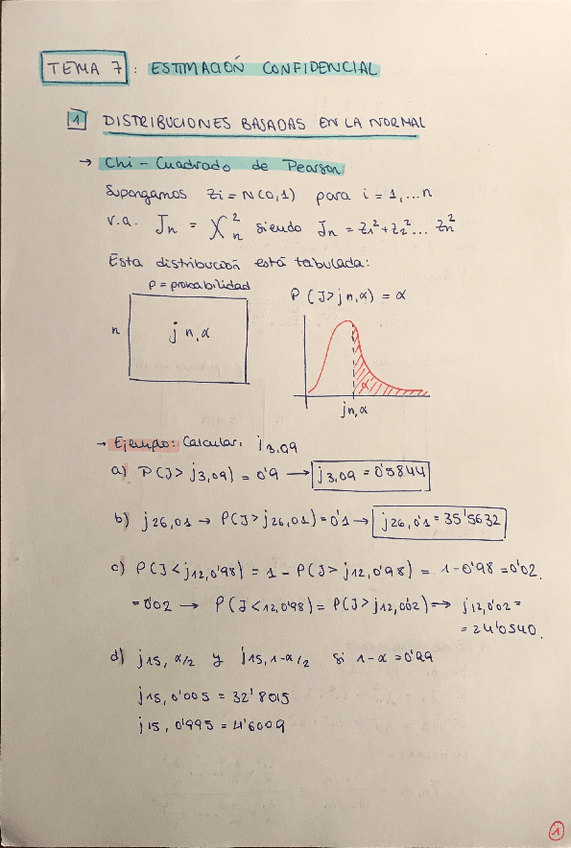 TEMA 7: ESTIMACIÓN CONFIDENCIAL
1 DISTRIBUCIONES BASADAS EN LA NORMAL
→ Chi-Cuadrado de Pearson
Supongamos Zi = N(0,1) para i = 1,...n
v.a. Jn = X²n siendo Jn = Z1² + Z2² ... Zn²
Esta distribución está tabulada:
P = probabilidad
n
j n,α
P (J > jn,α) = α
α
jn,α
→ Ejemplo: Calcular: j3,09
a) P(J > j3,09) = 0'9 → j3,09 = 0'5844
b) j26,01 → P(J > j26,01) = 0'1 → j26,0'1 = 35'5632
c) P(J < j12,0'98) = 1 - P(J > j12,0'98) = 1-0'98 = 0'02.
= 0'02 → P(J < 12,0'98) = P(J > j12,0'02) ⇒ j12,0'02 =
= 24'0540.
d) j15, α/2 y j15, 1-α/2 si 1-α = 0'99
j15, 0'005 = 32'8015
j15, 0'995 = 4'6009
1